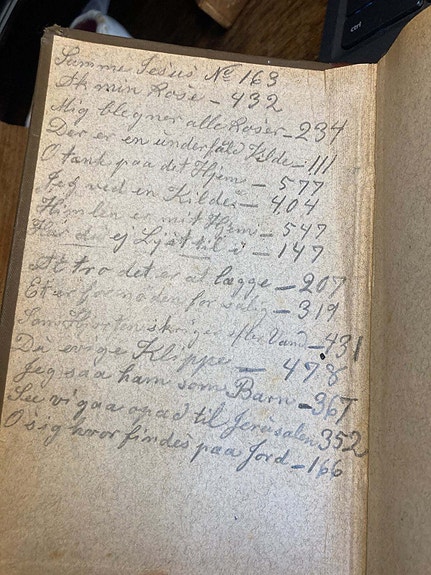 Samme Jesus No 163
Ak min Rose - 432
Mig blegner alle Roser - 234
Der er en underfuld Kilde - 111
O tænk paa det Hjem - 577
Jeg ved en Kilde - 404
Himlen er mit Hjem - 547
Har du ej Lyst til i - 147
At tro det er at lægge - 207
Et er fornøden for salig - 319
Som Hjorten skriger efter Vand - 431
Du evige Klippe - 478
Jeg saa ham som Barn - 367
See vi gaa op ad til Jerusalem 352
O sig hvor findes paa Jord - 166
ctrl